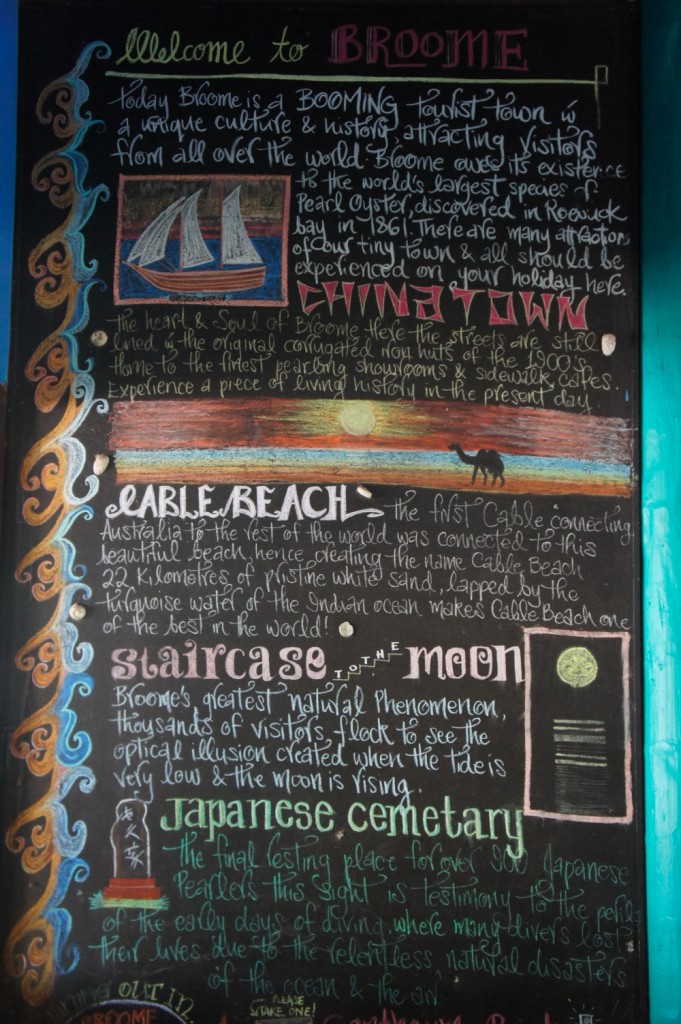 Welcome to BROOME
today Broome is a BOOMING tourist town is
a unique culture & history, attracting visitors
from all over the world. Broome owes its existence
to the world's largest species of
Pearl Oyster, discovered in Roewuck
bay in 1861. There are many attractions
of our tiny town & all should be
experienced on your holiday here.
CHINATOWN
the heart & Soul of Broome. Here the streets are still
lined is the original corrugated iron huts of the 1900's
Home to the finest pearling showrooms & sidewalk cafes.
Experience a piece of living history in the present day.
CABLE BEACH the first Cable connecting
Australia to the rest of the world was connected to this
beautiful beach, hence creating the name Cable Beach
22 Kilometres of pristine white sand, lapped by the
turquoise water of the Indian ocean makes Cable Beach one
of the best in the world!
Staircase TO THE moon
Broome's greatest natural Phenomenon,
thousands of visitors flock to see the
optical illusion created when the tide is
very low & the moon is rising.
Japanese Cemetary
the final resting place for over 900 Japanese
Pearlers this sight is testimony to the perils
of the early days of diving, where many divers lost
their lives due to the relentless, natural disasters
of the ocean & the air
Dining OUT IN
BROOME
PLEASE
TAKE ONE!